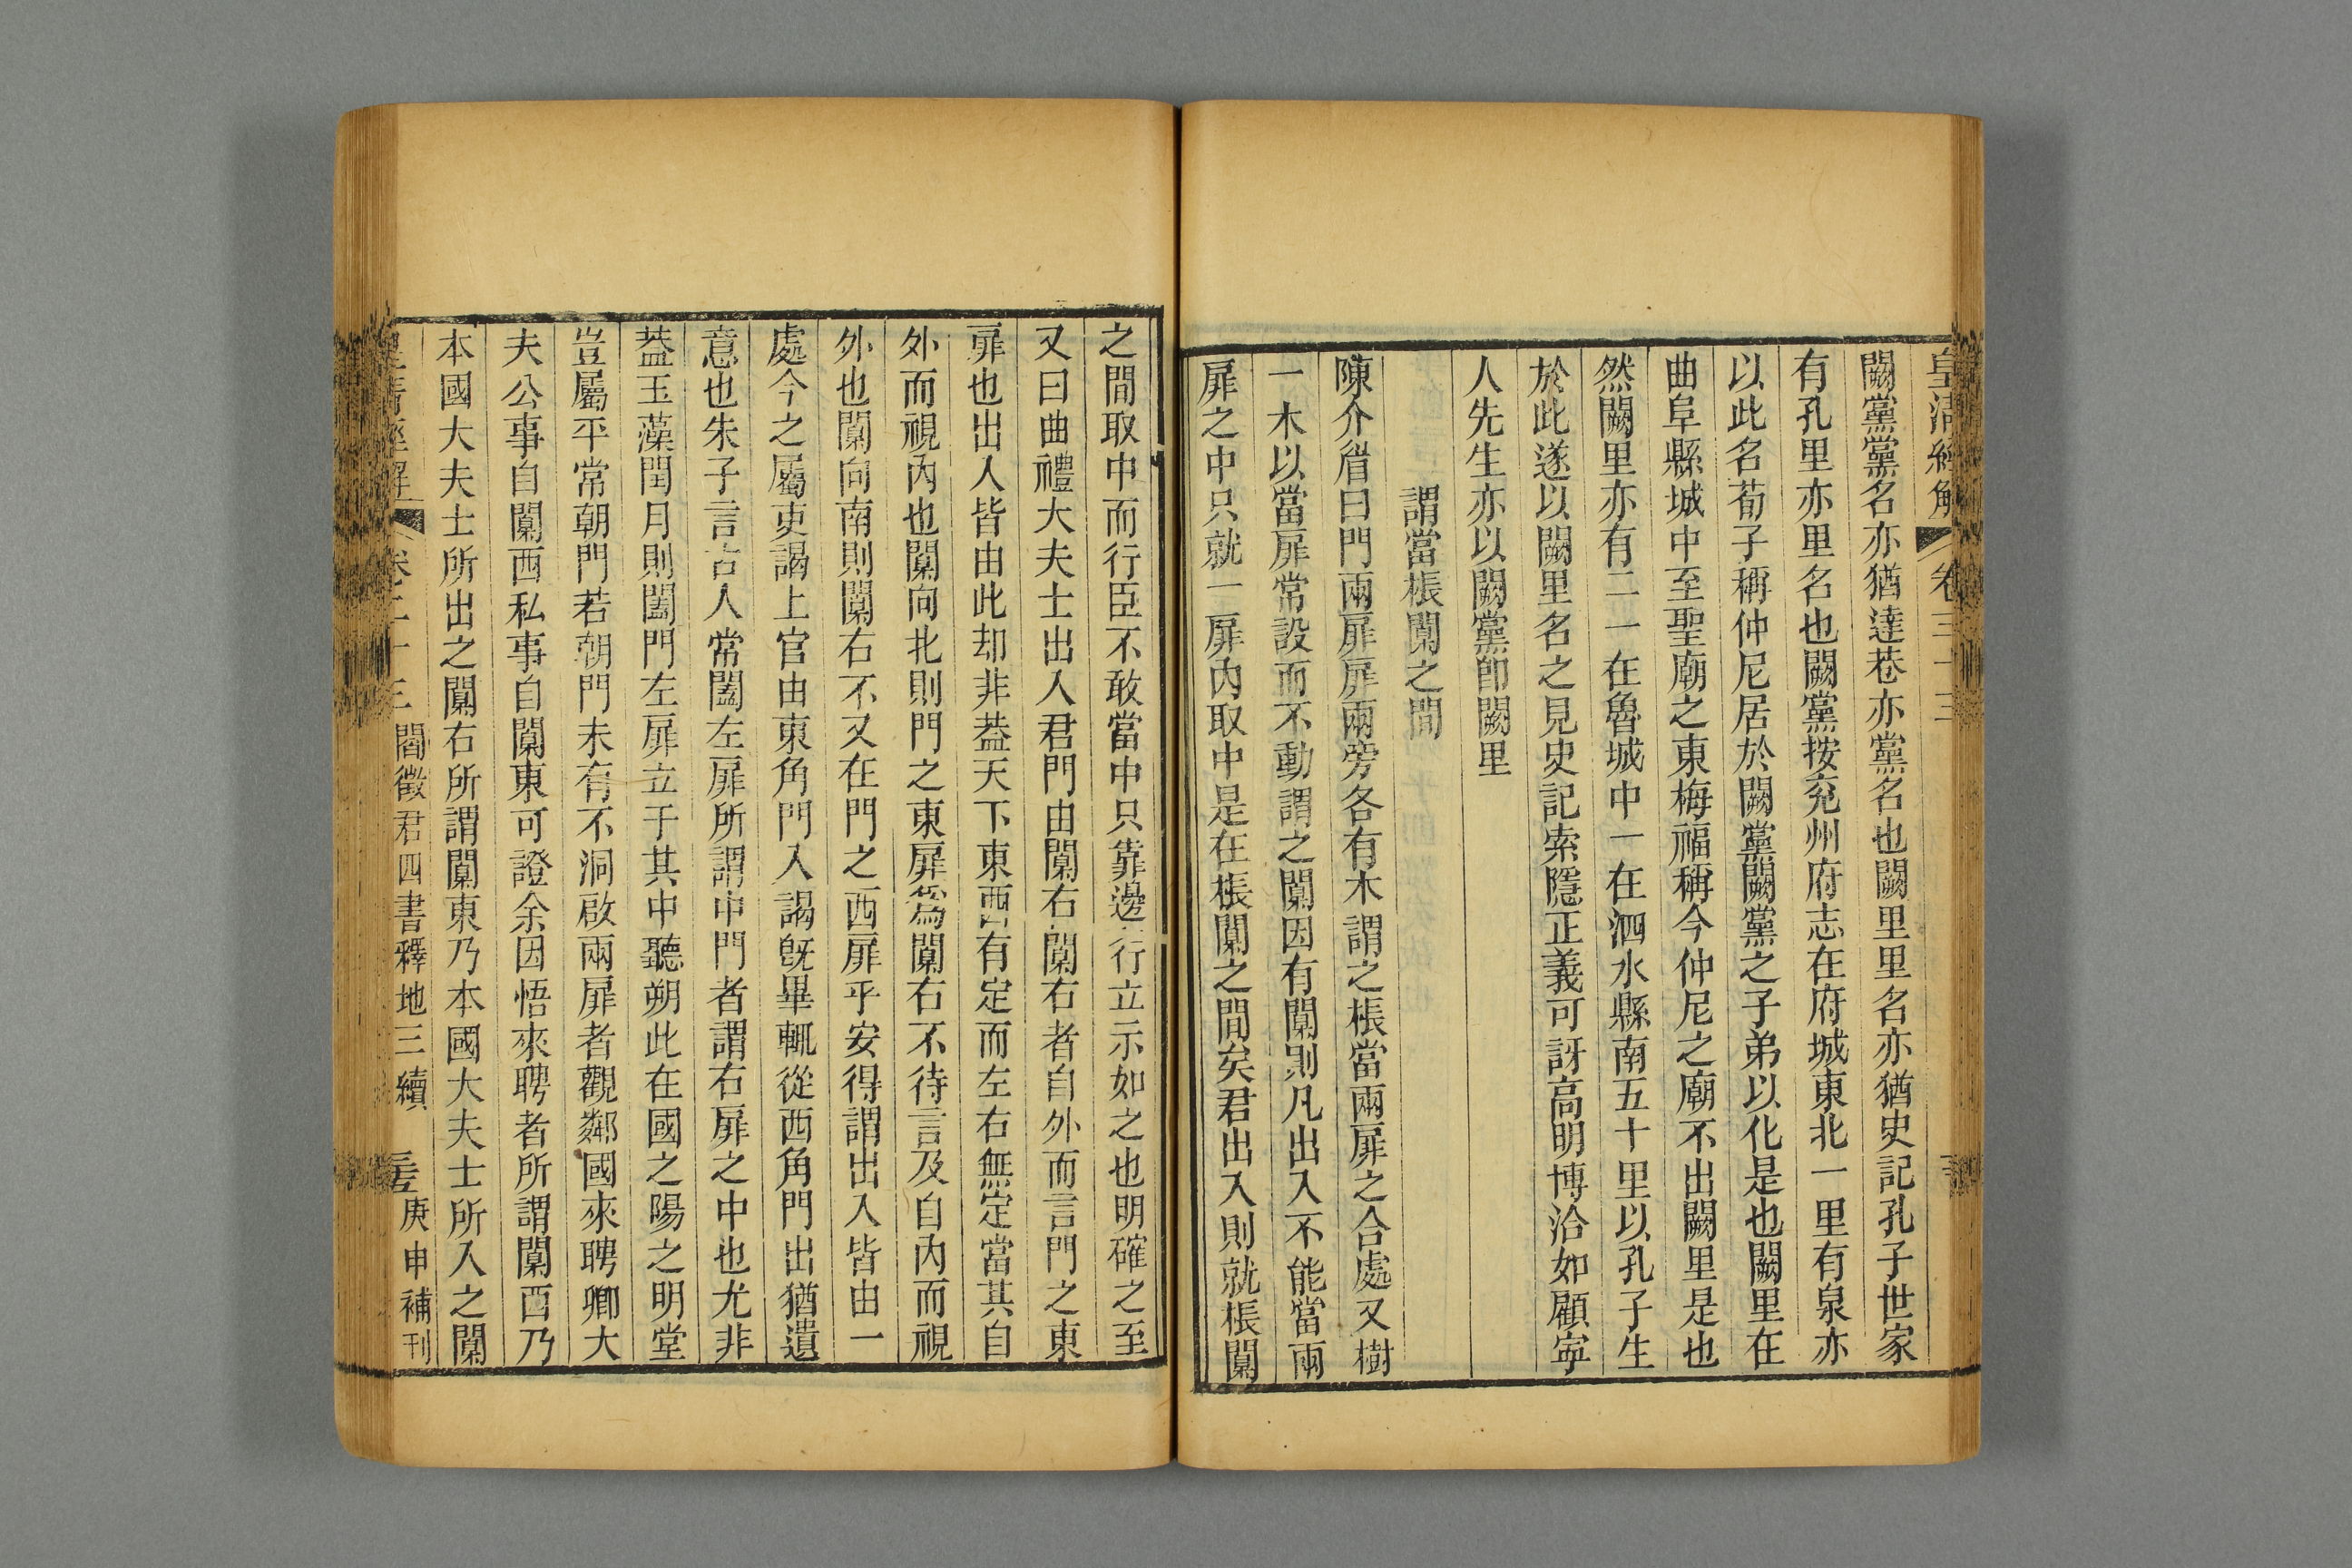 皇清經解 卷二十三
闕黨黨名亦猶達巷亦黨名也闕里里名亦猶史記孔子世家
有孔里亦里名也闕黨按兖州府志在府城東北一里有泉亦
以此名荀子稱仲尼居於闕黨闕黨之子弟以化是也闕里在
曲阜縣城中至聖廟之東梅福稱今仲尼之廟不出闕里是也
然闕里亦有二一在魯城中一在泗水縣南五十里以孔子生
於此遂以闕里名之見史記索隱正義可訝高明博洽如顧寧
人先生亦以闕黨卽闕里
謂當棖闑之間
陳介眉曰門兩扉扉兩旁各有木謂之棖當兩扉之合處又樹
一木以當扉常設而不動謂之闑因有闑則凡出入不能當兩
扉之中只就一扉內取中是在棖闑之間矣君出入則就棖闑
之間取中而行臣不敢當中只靠邊行立示如之也明確之至
又曰曲禮大夫士出入君門由闑右闑右者自外而言門之東
扉也出入皆由此却非葢天下東西有定而左右無定當其自
外而視內也闑向北則門之東扉爲闑右不待言及自內而視
外也闑向南則闑右不又在門之西扉乎安得謂出入皆由一
處今之屬吏謁上官由東角門入謁旣畢輒從西角門出猶遺
意也朱子言古人常闔左扉所謂中門者謂右扉之中也尤非
葢玉藻閏月則闔門左扉立于其中聽朔此在國之陽之明堂
豈屬平常朝門若朝門未有不洞啟兩扉者觀鄰國來聘卿大
夫公事自闑西私事自闑東可證余因悟來聘者所謂闑西乃
本國大夫士所出之闑右所謂闑東乃本國大夫士所入之闑
皇清經解 卷二十三 閻徵君四書釋地三續 庚申補刊